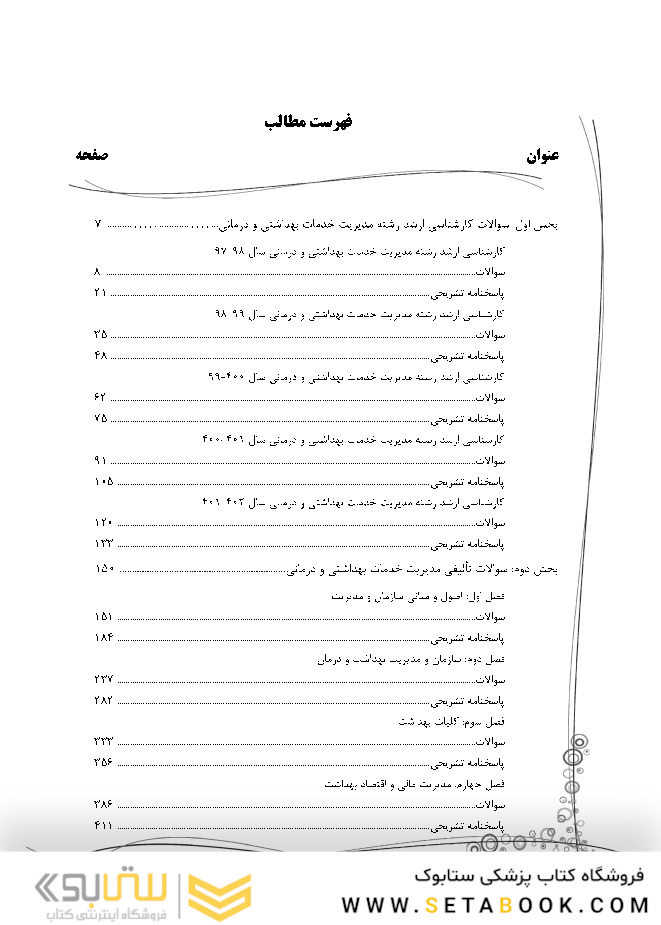 فهرست مطالب
عنوان صفحه
بخش اول: سوالات کارشناسی ارشد رشته مدیریت خدمات بهداشتی و درمانی ۷
کارشناسی ارشد رشته مدیریت خدمات بهداشتی و درمانی سال ۹۸-۹۷
سوالات ۸
پاسخنامه تشریحی ۲۱
کارشناسی ارشد رشته مدیریت خدمات بهداشتی و درمانی سال ۹۹-۹۸
سوالات ۳۵
پاسخنامه تشریحی ۴۸
کارشناسی ارشد رشته مدیریت خدمات بهداشتی و درمانی سال ۴۰۰-۹۹
سوالات ۶۲
پاسخنامه تشریحی ۷۵
کارشناسی ارشد رشته مدیریت خدمات بهداشتی و درمانی سال ۴۰۱-۴۰۰
سوالات ۹۱
پاسخنامه تشریحی ۱۰۵
کارشناسی ارشد رشته مدیریت خدمات بهداشتی و درمانی سال ۴۰۲-۴۰۱
سوالات ۱۲۰
پاسخنامه تشریحی ۱۳۳
بخش دوم: سوالات تألیفی مدیریت خدمات بهداشتی و درمانی ۱۵۰
فصل اول: اصول و مبانی سازمان و مدیریت
سوالات ۱۵۱
پاسخنامه تشریحی ۱۸۴
فصل دوم: سازمان و مدیریت بهداشت و درمان
سوالات ۲۳۷
پاسخنامه تشریحی ۲۸۲
فصل سوم: کلیات بهداشت
سوالات ۳۳۳
پاسخنامه تشریحی ۳۵۶
فصل چهارم: مدیریت مالی و اقتصاد بهداشت
سوالات ۳۸۶
پاسخنامه تشریحی ۴۱۱
فروشگاه کتاب پزشکی ستابوک
WWW.SETABOOK.COM
ستابوک
فروشگاه اینترنتی کتاب